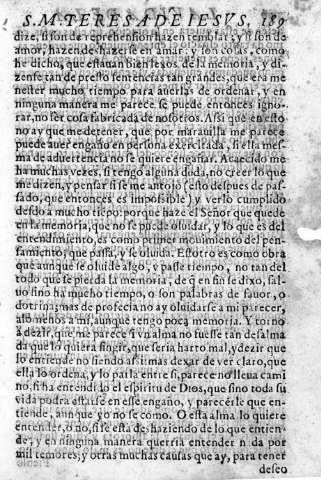 S. M. TERESA DE IESVS, 189
dize, si son de reprehension hazen temblar; y si son de
amor, hazen deshazerse en amar: y son cosas, como
he dicho, que estauan bien lexos de la memoria, y di-
zense tan de presto sentencias tan grandes, que era me
nester mucho tiempo para auerlas de ordenar, y en
ninguna manera me parece se puede entonces igno-
rar, no ser cosa fabricada de nosotros. Assi que en esto
no ay que me detener, que por marauilla me parece
puede auer engaño en persona exercitada, si ella mes-
ma de aduertencia no se quiere engañar. Acaecido me
ha muchas vezes, si tengo alguna duda, no creer lo que
me dizen, y pensar si se me antojò (esto despues de pas-
sado, que entonces es impossible) y verlo cumplido
desdo a mucho tiẽpo: porque haze el Señor que quede
en la memoria, que no se puede oluidar, y lo que es del
entendimiento, es como primer mouimiento del pen-
samiento, que passa, y se oluida. Estotro es como obra
que aunque se oluide algo, y passe tiempo, no tan del
todo que se pierda la memoria, de q̃ en fin se dixo, sal-
uo sino ha mucho tiempo, o son palabras de fauor, o
dotrina; mas de profecia no ay oluidarse a mi parecer,
alo menos a mi, aunque tengo poca memoria. Y torno
a dezir, que me parece si vn alma no fuesse tan desalma
da que lo quiera fingir, que seria harto mal, y dezir que
lo entiende no siendo assi: mas dexar de ver claro, que
ella lo ordena, y lo parla entre si, parece no lleua cami
no, si ha entendido el espiritu de Dios, que sino toda su
vida podra estarse en esse engaño, y parecerle que en-
tiende, aunque yo no se como. O esta alma lo quiere
entender, o no, si se esta deshaziendo de lo que entien-
de, y en ninguna manera querria entender nada por
mil temores, y otras muchas causas que ay, para tener
deseo